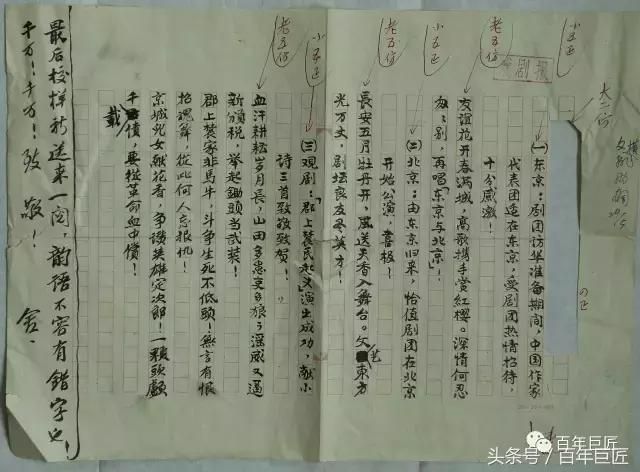 小五正
老五仿
小五正
老五仿
小五正
老五仿
大二仿
京剧报
(一)东京:剧团访华准备期间,中国作家
代表团适在东京,受剧团热情招待,
十分感激!
友谊花开春满城,高歌携手赏红樱。深情何忍
匆匆别,再唱“东京与北京”!
(二)北京:由东京归来,恰值剧团在北京
开始公演,喜极!
长安五月牡丹开,风送天香入舞台。文艺东方
光万丈,剧坛良友尽英才!
(三)观剧:“郡上农民起义”演出成功,献小
诗三首致敬致贺!
血汗耕耘岁月长,山田多恶吏多狼;淫威又逼
新颁税,举起锄头当武装!
郡上农家非马牛,斗争生死不低头!无言有恨
招魂舞,从此何人忘报仇!
京城儿女献花香,争赞英雄定次郎!一颗头颅
千载债,要从革命血中偿!
最后校样祈送来一阅,韵语不容有错字也!
千万!千万!致敬!
舍
头条号/百年巨匠
百年巨匠